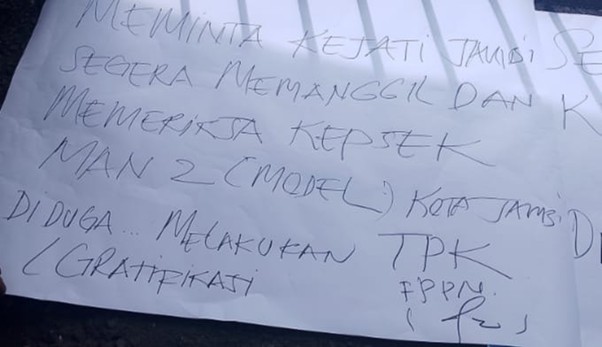 MEMINTA KEJATI JAMBI SE
SEGERA MEMANGGIL DAN K
MEMERIKSA KEPSEK
MAN 2 (MODEL) KOTA JAMBI D
DIDUGA... MELAKUKAN TPK
(GRATIFIKASI
FPPN.